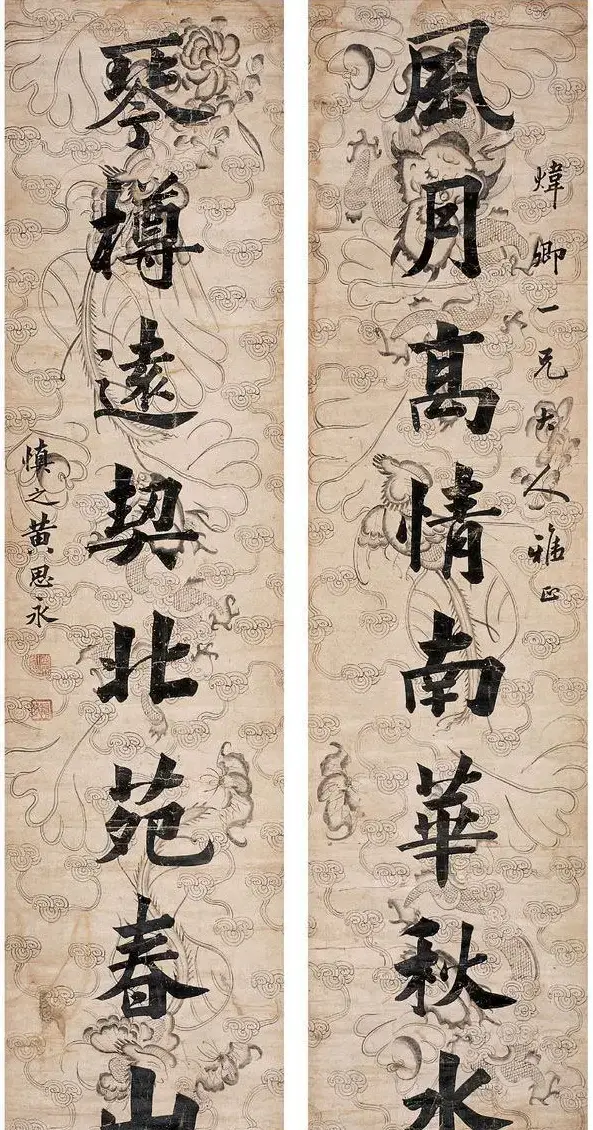 煒卿一兄大人雅正
風月髙情南華秋水
琴墫遠契北苑春山
慎之黃思永